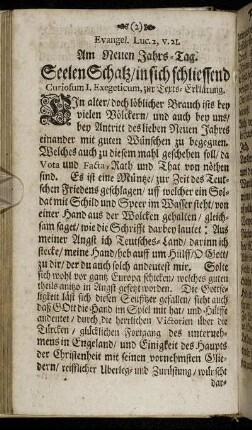 (2)
Evangel. Luc. 2, v. 21.
Am Neuen Jahrs-Tag.
Seelen Schatz/in sich schliessend
Curiosum I. Exegeticum, zur Texts-Erklärung.
Ein alter/ doch löblicher Brauch ists bey
vielen Völckern/ und auch bey uns/
bey Antritt des lieben Neuen Jahres
einander mit guten Wünschen zu begegnen.
Welches auch zu diesem mahl geschehen soll/ da
Vota und Facta, Rath und That von nöthen
sind. Es ist eine Müntz/ zur Zeit des Teut-
schen Friedens geschlagen/ uff welcher ein Sol-
dat mit Schild und Speer im Wasser steht/ von
einer Hand aus der Wolcken gehalten/ gleich-
sam saget/ wie die Schrifft darbey lautet: Aus
meiner Angst ich Teutsches-Land/ darinn ich
stecke/ meine Hand/ heb auff um Hülff/ O Gott/
zu dir/ der du auch solch andeutest mir. Solte
sich wohl vor gantz Europa schicken/ welches guten
theils anitzo in Angst gesetzt worden. Die Gottse-
ligkeit läst sich diesen Seufftzer gefallen/ sieht auch
daß Gott die Hand im Spiel mit hat/ und Hülffe
andeutet/ durch die herrlichen Victorien über die
Türcken/ glücklichen Fortgang des unterneh-
mens in Engeland/ und Einigkeit des Haupts
der Christenheit mit seinen vornehmsten Glie-
dern/ reifflicher Uberleg- und Zurüstung/ würscht
dar-